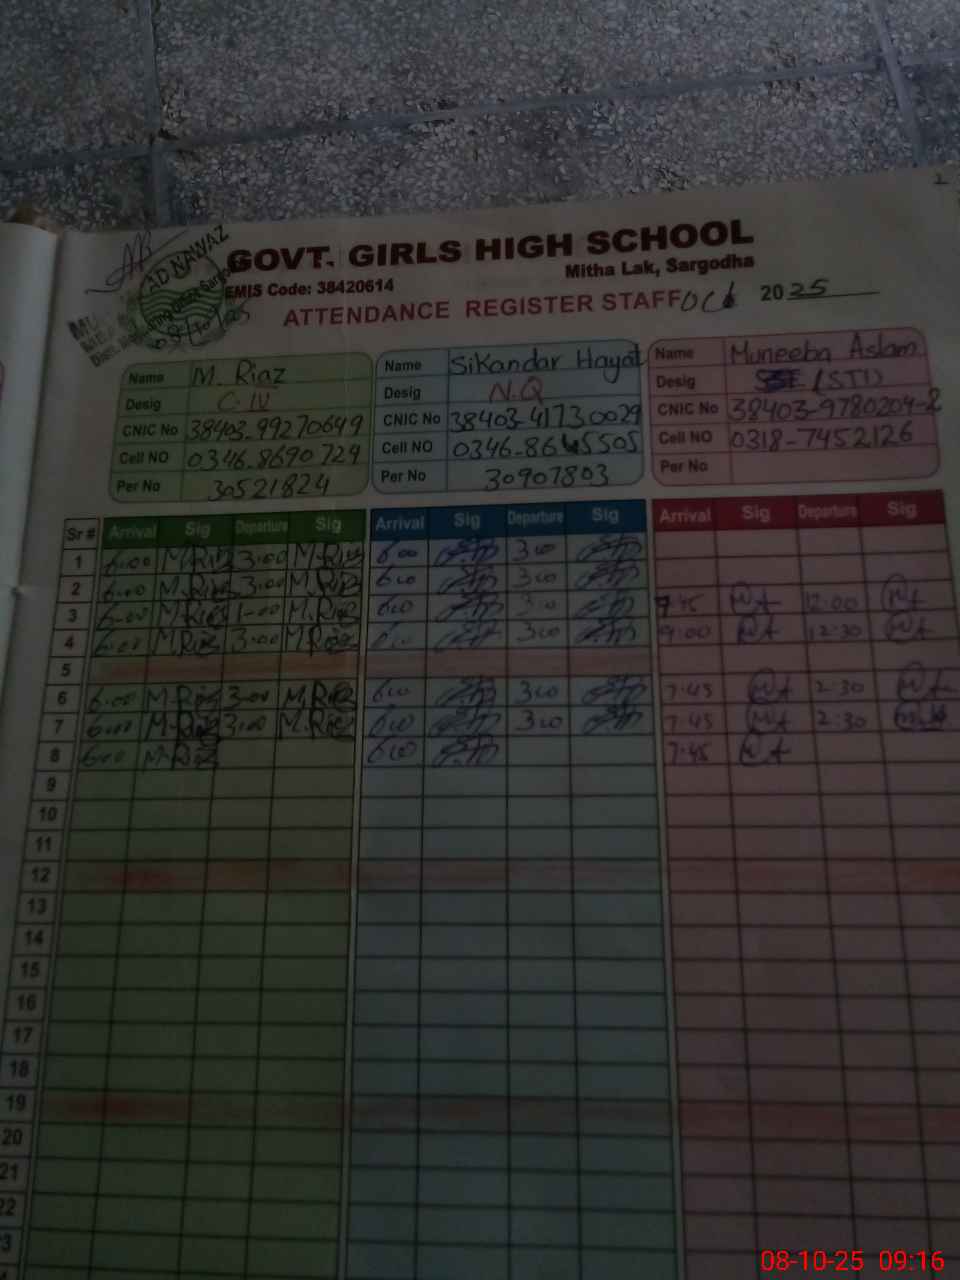 2
AD NAWAZ
GOVT. GIRLS HIGH SCHOOL
Mitha Lak, Sargodha
EMIS Code: 38420614
ATTENDANCE REGISTER STAFF Oct 2025
Name M. Riaz
Desig C-IV
CNIC No 38403-99270649
Cell NO 0346-8690729
Per No 30521824
Name Sikandar Hayat
Desig N.Q
CNIC No 38403-41730029
Cell NO 0346-8645505
Per No 30907803
Name Muneeba Aslam
Desig (STI)
CNIC No 38403-9780204-2
Cell NO 0318-7452126
Per No
Sr # Arrival Sig Departure Sig Arrival Sig Departure Sig Arrival Sig Departure Sig
1 6:00 M.Riaz 3:00 M.Riaz 600 300
2 6:00 M.Riaz 3:00 M.Riaz 600 300
3 6:00 M.Riaz 1:00 M.Riaz 600 300 7:45 12:00
4 6:00 M.Riaz 3:00 M.Riaz 600 300 9:00 12:30
5
6 6:00 M.Riaz 3:00 M.Riaz 600 300 7:45 2:30
7 6:00 M.Riaz 3:00 M.Riaz 600 300 7:45 2:30
8 6:00 M.Riaz 600 7:45
9
10
11
12
13
14
15
16
17
18
19
20
21
22
23
08-10-25 09:16